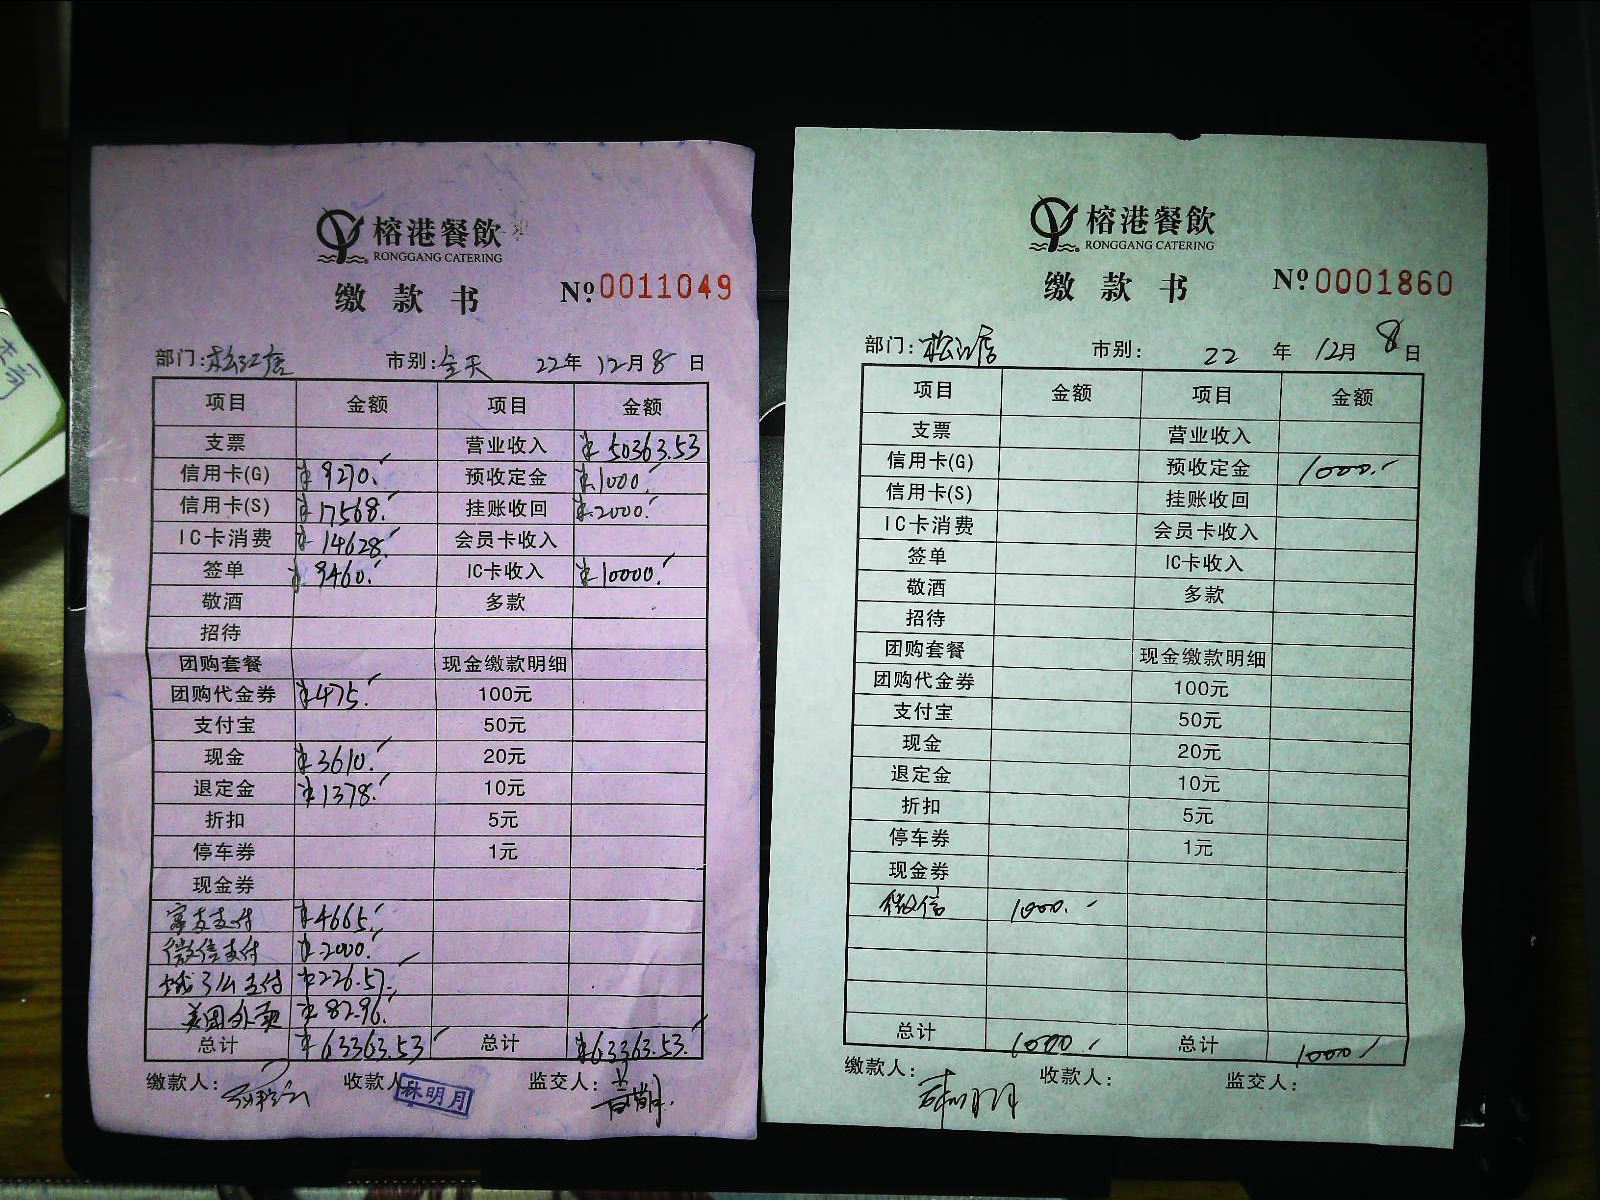 榕港餐飲
RONGGANG CATERING
缴款书
№ 0011049
部门: 松江店 市别: 全天 22年 12月 8日
项目 金额 项目 金额
支票 营业收入 ¥50363.53
信用卡(G) ¥9270. 预收定金 ¥1000.
信用卡(S) ¥17568. 挂账收回 ¥2000.
IC卡消费 ¥14628. 会员卡收入
签单 ¥9460. IC卡收入 ¥10000.
敬酒 多款
招待
团购套餐 现金缴款明细
团购代金券 ¥475. 100元
支付宝 50元
现金 ¥3610. 20元
退定金 ¥1378. 10元
折扣 5元
停车券 1元
现金券
支付 ¥4665.
微信支付 ¥2000.
饿了么支付 ¥226.57
美团外卖 ¥82.96
总计 ¥63363.53 总计 ¥63363.53
缴款人: 收款人: 林明月 监交人:
榕港餐飲
RONGGANG CATERING
缴款书
№ 0001860
部门: 松江店 市别: 22年 12月 8日
项目 金额 项目 金额
支票 营业收入
信用卡(G) 预收定金 1000.-
信用卡(S) 挂账收回
IC卡消费 会员卡收入
签单 IC卡收入
敬酒 多款
招待
团购套餐 现金缴款明细
团购代金券 100元
支付宝 50元
现金 20元
退定金 10元
折扣 5元
停车券 1元
现金券
微信 1000.-
总计 1000.- 总计 1000.-
缴款人: 收款人: 监交人: